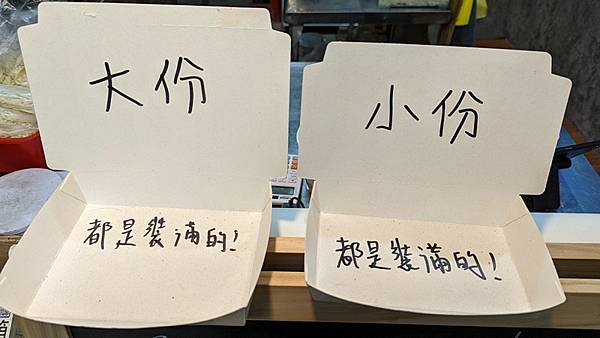 大份
都是裝滿的!
小份
都是裝滿的!